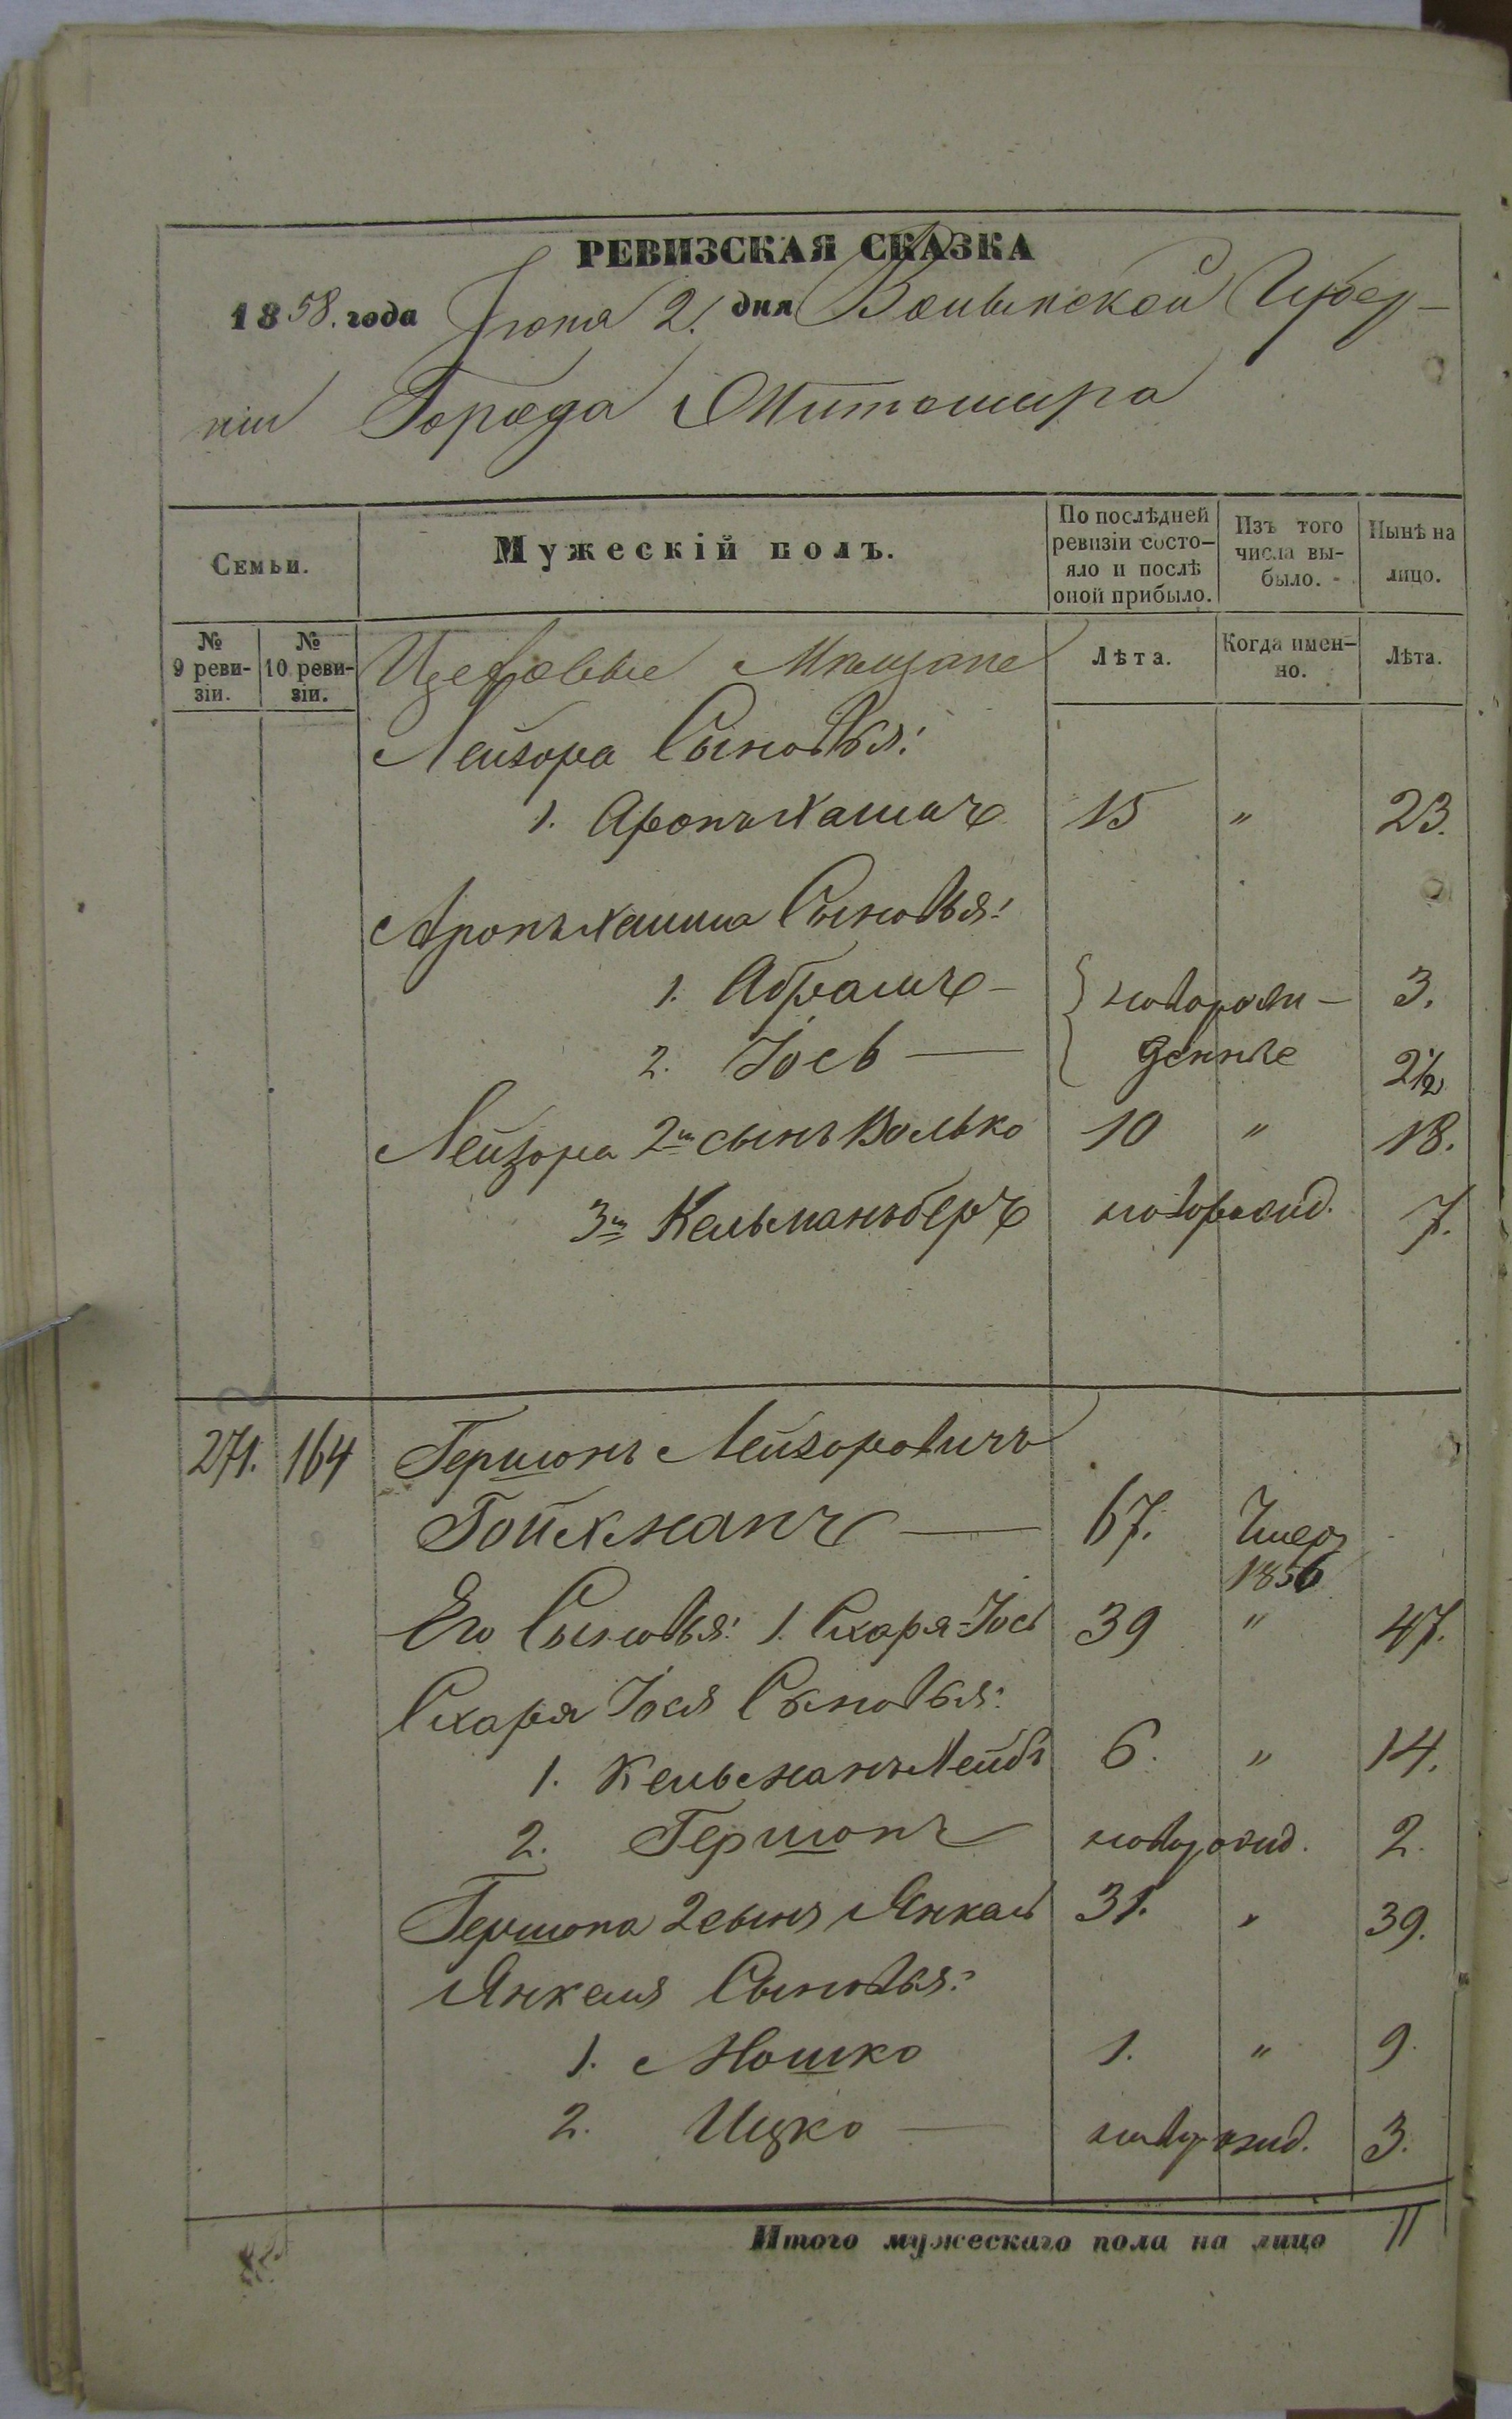 РЕВИЗСКАЯ СКАЗКА
1858. года Іюня 2. дня Волынской Губер-
ніи Города Житомира
Семьи.
Мужескій полъ.
По послѣдней ревизіи состо-яло и послѣ оной прибыло.
Изъ того числа вы-было.
Нынѣ на лицо.
№ 9 реви-зіи.
№ 10 реви-зіи.
Цеховые Мѣщане
Лѣта.
Когда имен-но.
Лѣта.
Лейзора Сыновья:
1. Аронъ Хаимъ 15 " 23.
Аронъ Хаима Сыновья:
1. Абрамъ — новорож- 3.
2. Іось — денные 2 1/2
Лейзора 2й сынъ Волько 10 " 18.
3й Кельманъ Беръ новорожд. 7.
271. 164 Гершонъ Лейзоровичъ
Гойхманъ — 67. Умеръ
1856
Его Сыновья: 1. Схаря-Іось 39 " 47.
Схаря Іося Сыновья:
1. Кельманъ Лейбъ 6. " 14.
2. Гершонъ новорожд. 2.
Гершона 2 сынъ Янкель 31. " 39.
Янкеля Сыновья:
1. Мошко 1. " 9.
2. Ицко — новорожд. 3.
Итого мужескаго пола на лицо 11